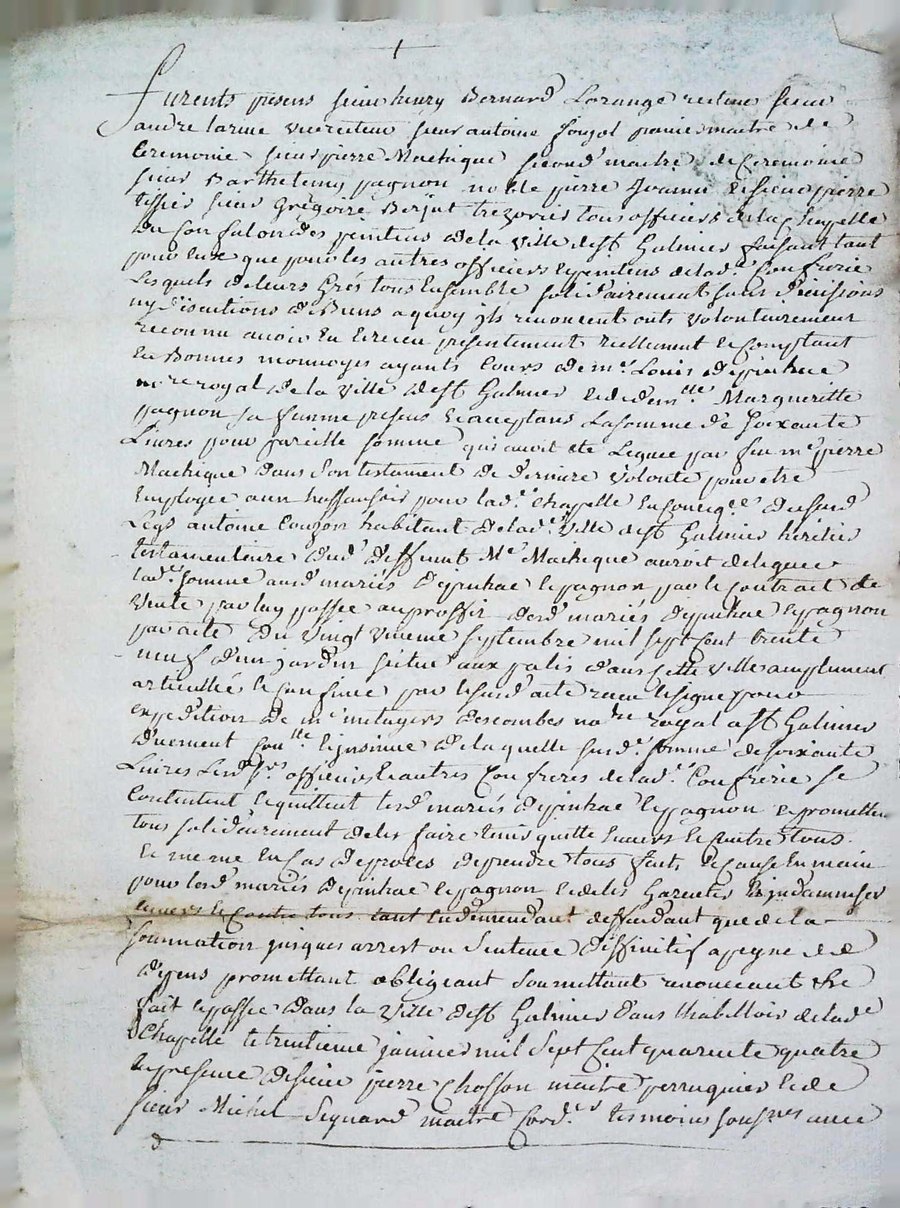 Furents presens sieur henry Bernard Lorange recteur sieur
andre larme vicerecteur sieur antoine premier maitre de
Ceremonie sieur pierre Machique second maitre de Ceremonie
sieur Barthelemy pagnon no re pierre et sieur pierre
tissier sieur Grégoire trezorier tous officiers de la Chapelle
Du Confalon des penitens de la ville de st Galmier faisant tant
pour eux que pour les autres officiers et penitens de lad.e Confrerie
Lesquels de leurs Grés tous Ensemble solidairement sans Divisions
ny discutions de Biens a quoy ils renoncent onts volontairement
reconnu avoir Eu et receu presentement reellement et Comptant
En Bonnes monnoyes ayants Cours de me. Louis depinhac
no re royal de la ville de st Galmier et de dem.lle Margueritte
pagnon sa femme presens et acceptans La somme de soixante
Livres pour pareille somme qui avoit ete Leguée par feu me pierre
Machique dans son testament de derniere volonté pour etre
Employée a un pour lad.e Chapelle En Conseq.ce Dususd
Legs antoine Couzon habitant de lad.e ville de st Galmier heritier
testamentaire dud deffunt Me Machique auroit delegué
lad.e somme aud mariés Depinhac et pagnon par le Contrat de
vente par luy passée au proffit desd mariés Depinhac et pagnon
par acte Du vingt septembre mil sept Cent trente
neuf d'un jardin scitué aux palis dans cette ville amplement
articullé et Confiné par le susd acte receu et signé pour
expedition de me metayers descombes no re royal a st Galmier
Duement Con.llé et insinué de la quelle susd.e somme de soixante
Livres Lesd srs officiers et autres Confreres de lad.e Confrerie se
Contentent et quittent lesd mariés depinhac et pagnon et promettent
tous solidairement de les faire tenir quitte Envers et Contre tous.
Et meme En Cas de procès de prendre tous fait et Cause En main
pour lesd mariés Depinhac et pagnon et de les Garentir et indamniser
Envers et Contre tous tant En demendant deffendant que de la
sommation jusques arrest ou sentence Diffinitif a peyne de
depens promettant obligeant soumettant renonceant &c
fait et passée dans la ville de st Galmier dans de lad.e
Chapelle le trentieme janvier mil sept Cent quarente quatre
En presence de sieur pierre Chosson maitre perruquier et de
sieur Michel Siguard maitre Cord.er tesmoins sous.nés avec